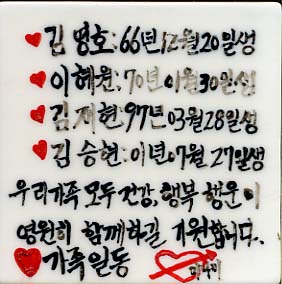 김명호:66년12월20일생
이혜원:70년01월30일생
김재현:97년03월28일생
김승현:01년07월27일생
우리가족 모두 건강, 행복 행운이
영원히 함께하길 기원합니다.
가족일동